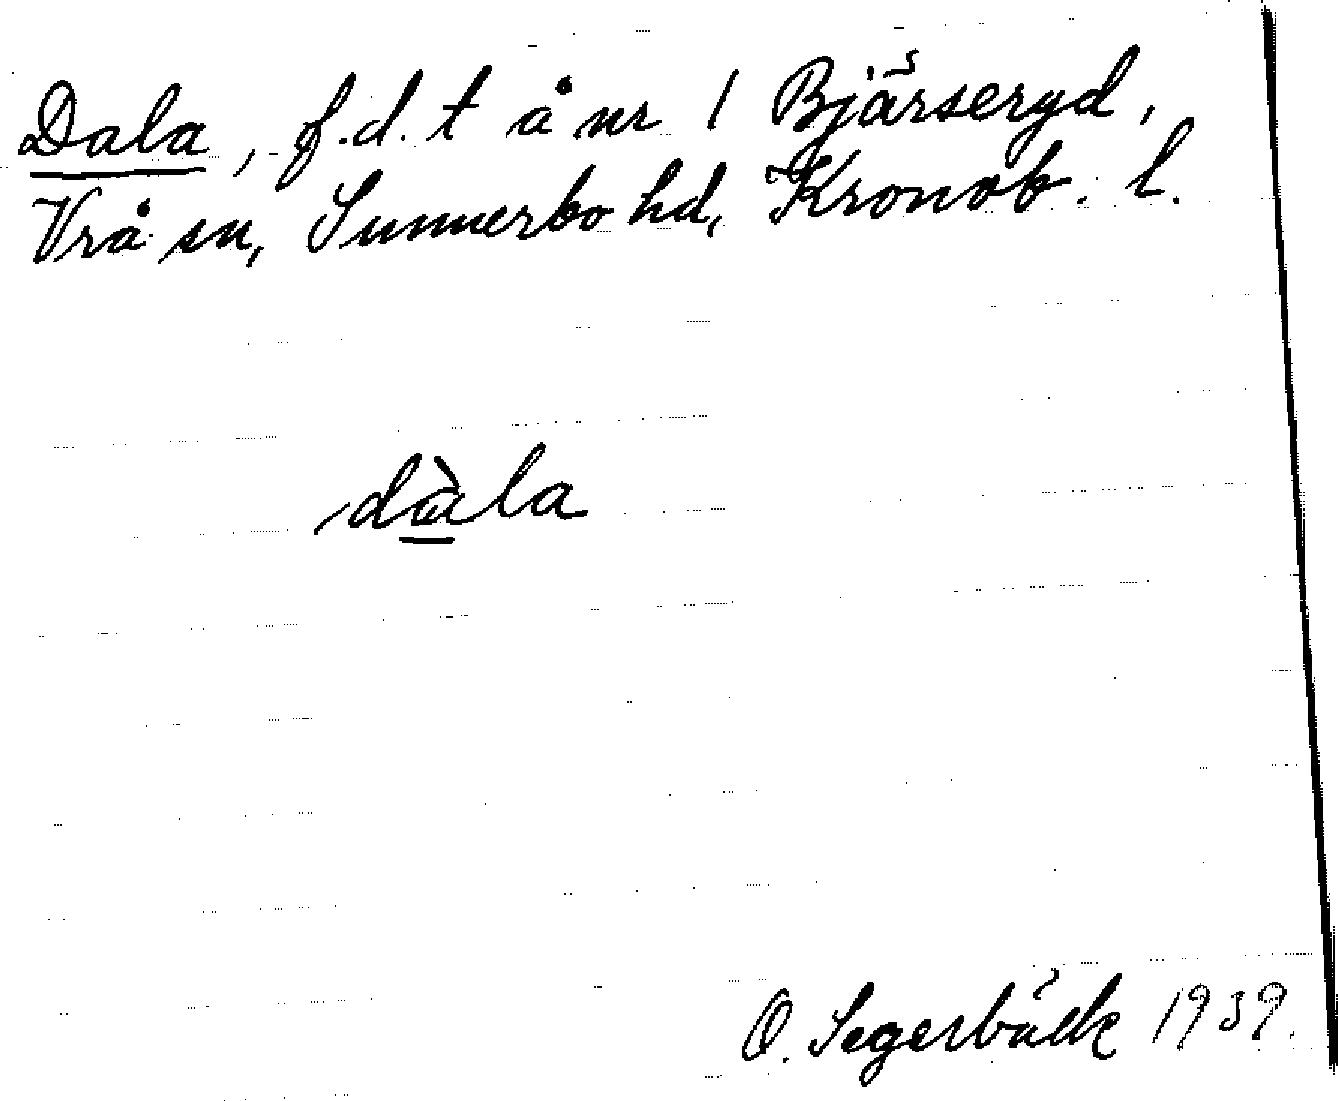 Dala, f.d. t å nr 1 Bjärseryd,
Vrå sn, Sunnerbo hd, Kronob. l.
dàla
O. Segerbäck 1939.